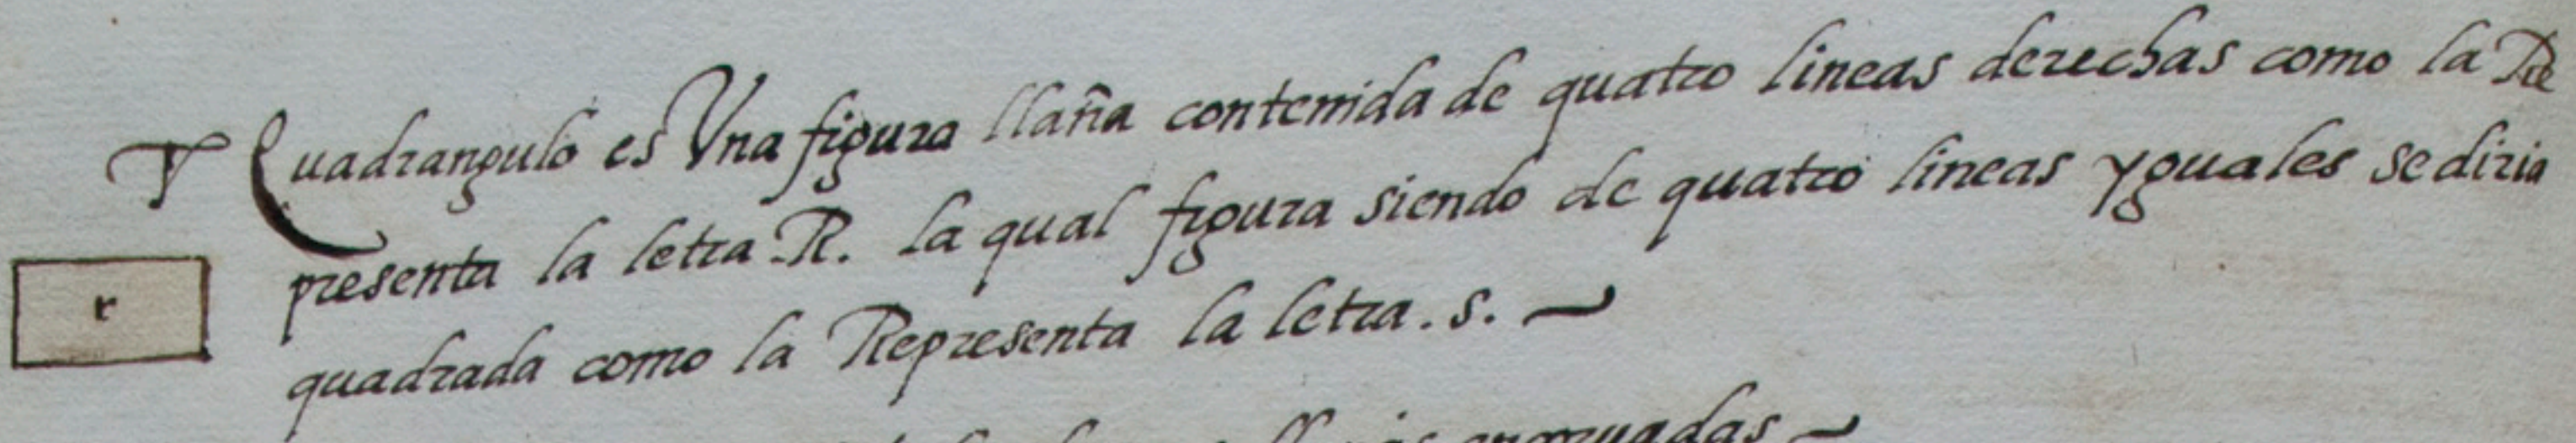 Quadrangulo es Vna figura llaña contenida de quatro lineas derechas como la Re
presenta la letra R. la qual figura siendo de quatro lineas yguales se diria
r
quadrada como la Representa la letra .s.